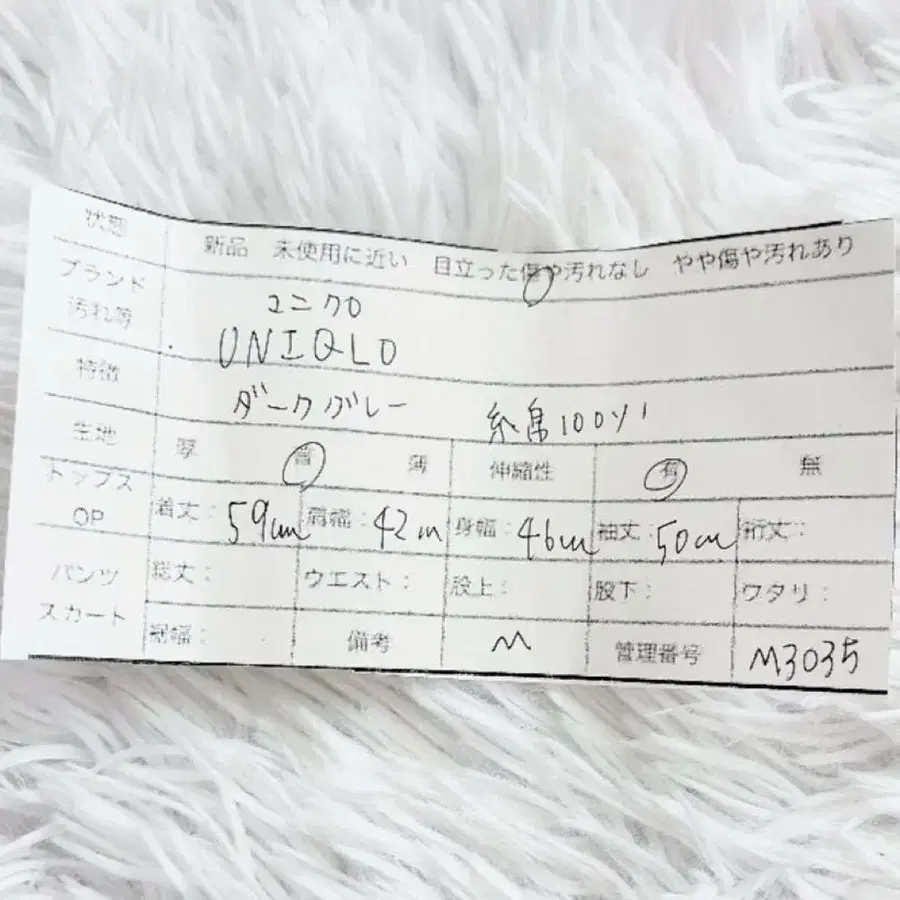 状態 新品 未使用に近い 目立った傷や汚れなし やや傷や汚れあり
ブランド ユニクロ
汚れ等 UNIQLO
特徴 ダークグレー 綿100%
生地 厚 普 薄 伸縮性 有 無
トップス OP 着丈: 59cm 肩幅: 42cm 身幅: 46cm 袖丈: 50cm 裄丈:
パンツ 総丈: ウエスト: 股上: 股下: ワタリ:
スカート 裾幅: 備考 M 管理番号 M3035